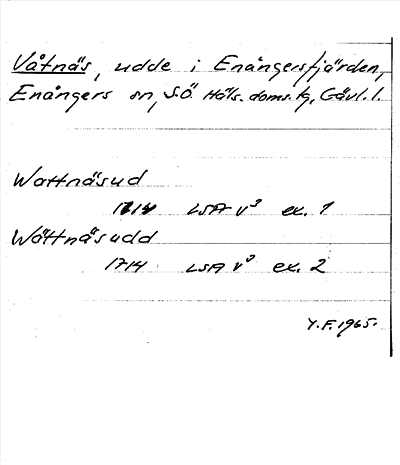 Våtnäs, udde i Enångersfjärden,
Enångers sn, S.Ö. Häls. doms. tg, Gävl. l.
Wattnäsud
1714 LSA V³ ex. 1
Wåttnäsudd
1714 LSA V³ ex. 2
Y.F. 1965.